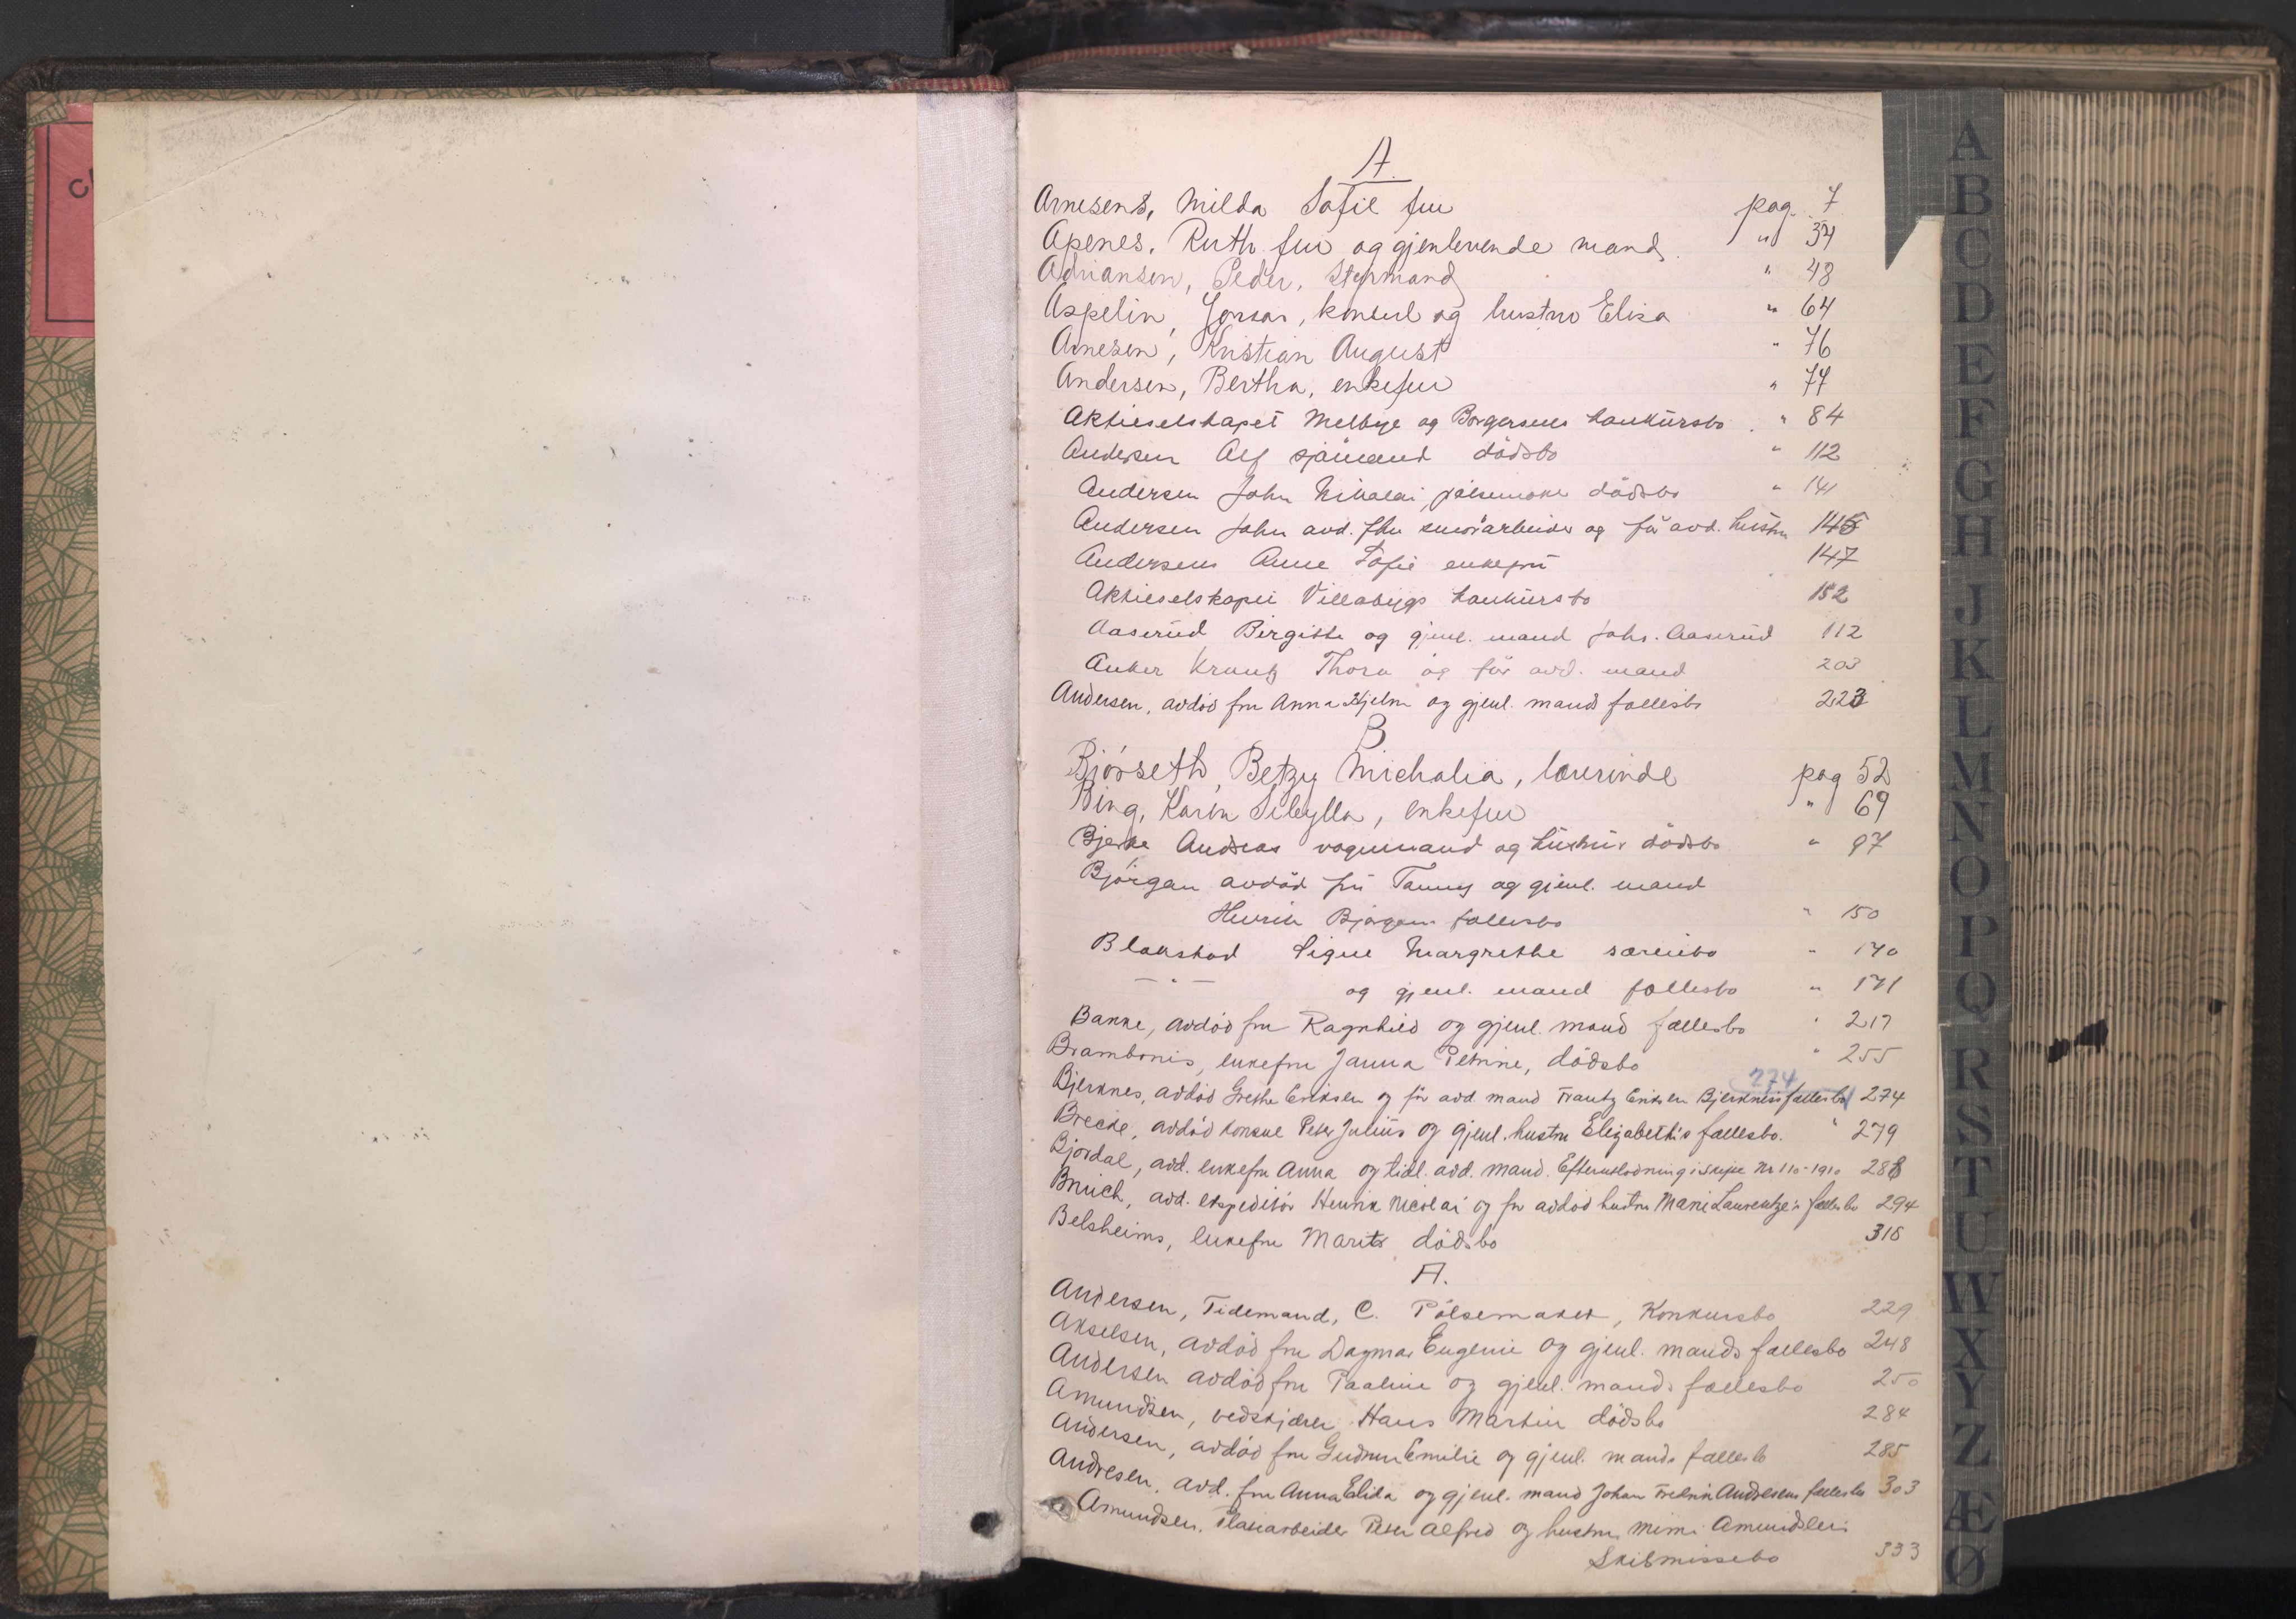 A.
Arnesens, Milda Sofie fru pag. 7
Apenes, Ruth fru og gjenlevende mand " 34
Adriansen, Peder, Styrmand " 48
Aspelin, konsul og hustru Elisa " 64
Arnesen, Kristian August " 76
Andersen, Bertha, enkefru " 77
Aktieselskapet Melbye og Borgersens konkursbo " 84
Andersen Alf sjömand dödsbo " 112
Andersen John Nikolai, pölsemaker dödsbo " 141
Andersen John avd. murarbeider og för avd. hustru 145
Andersens Anne Sofie enkefru 147
Aktieselskapet Villabygs konkursbo 152
Aaserud Birgitte og gjenl. mand Johs. Aaserud 112
Anker Krantz Thora og för avd. mand 203
Andersen, avdöd fru Anna Hjelm og gjenl. mands fællesbo 223
B
Bjørseth, Betzy Michalia, lærerinde pag 52
Bing, Karen Sibylla, enkefru " 69
Bjerke Andreas vognmand og hustrus dödsbo " 97
Björgan avdöd fru Fanny og gjenl. mand
Henrik Björgans fællesbo " 150
Blakstad Signe Margrethe særeiebo " 170
— " — og gjenl. mand fællesbo " 171
Bakke, avdöd fru Ragnhild og gjenl. mand fællesbo " 217
Brambonis, enkefru Janna Petrine, dödsbo " 255
274
Bjerknes, avdöd Grethe Eriksen og för avd. mand Frantz Eriksen Bjerknes fællesbo 274
Brecke, avdöd konsul Peter Julius og gjenl. hustru Elizabeth's fællesbo. " 279
Bjordal, avd. enkefru Anna og tidl. avd. mand. Efterutlodning i skifte Nr 110-1910 286
Bruch, avd. ekspeditör Henrik Nicolai og för avdöd hustru Marie Laurentze's fællesbo 294
Belsheims, enkefru Marit dödsbo 318
A.
Andersen, Tidemand, C. Pölsemaker, Konkursbo 229
Akselsen, avdöd fru Dagmar Eugenie og gjenl. mands fællesbo 248
Andersen avdöd fru Pauline og gjenl. mands fællesbo 250
Amundsen, vedskjærer Hans Martin dödsbo 284
Andersen, avdöd fru Gudrun Emilie og gjenl. mands fællesbo 285
Andresen, avd. fru Anna Elida og gjenl. mand Johan Fredrik Andresens fællesbo 303
Amundsen, Peter Alfred og hustru Mimi Amundsens
Skilsmissebo 333
A
B
C
D
E
F
G
H
J
K
L
M
N
O
P
Q
R
S
T
U
W
X
Y
Z
Æ
Ø